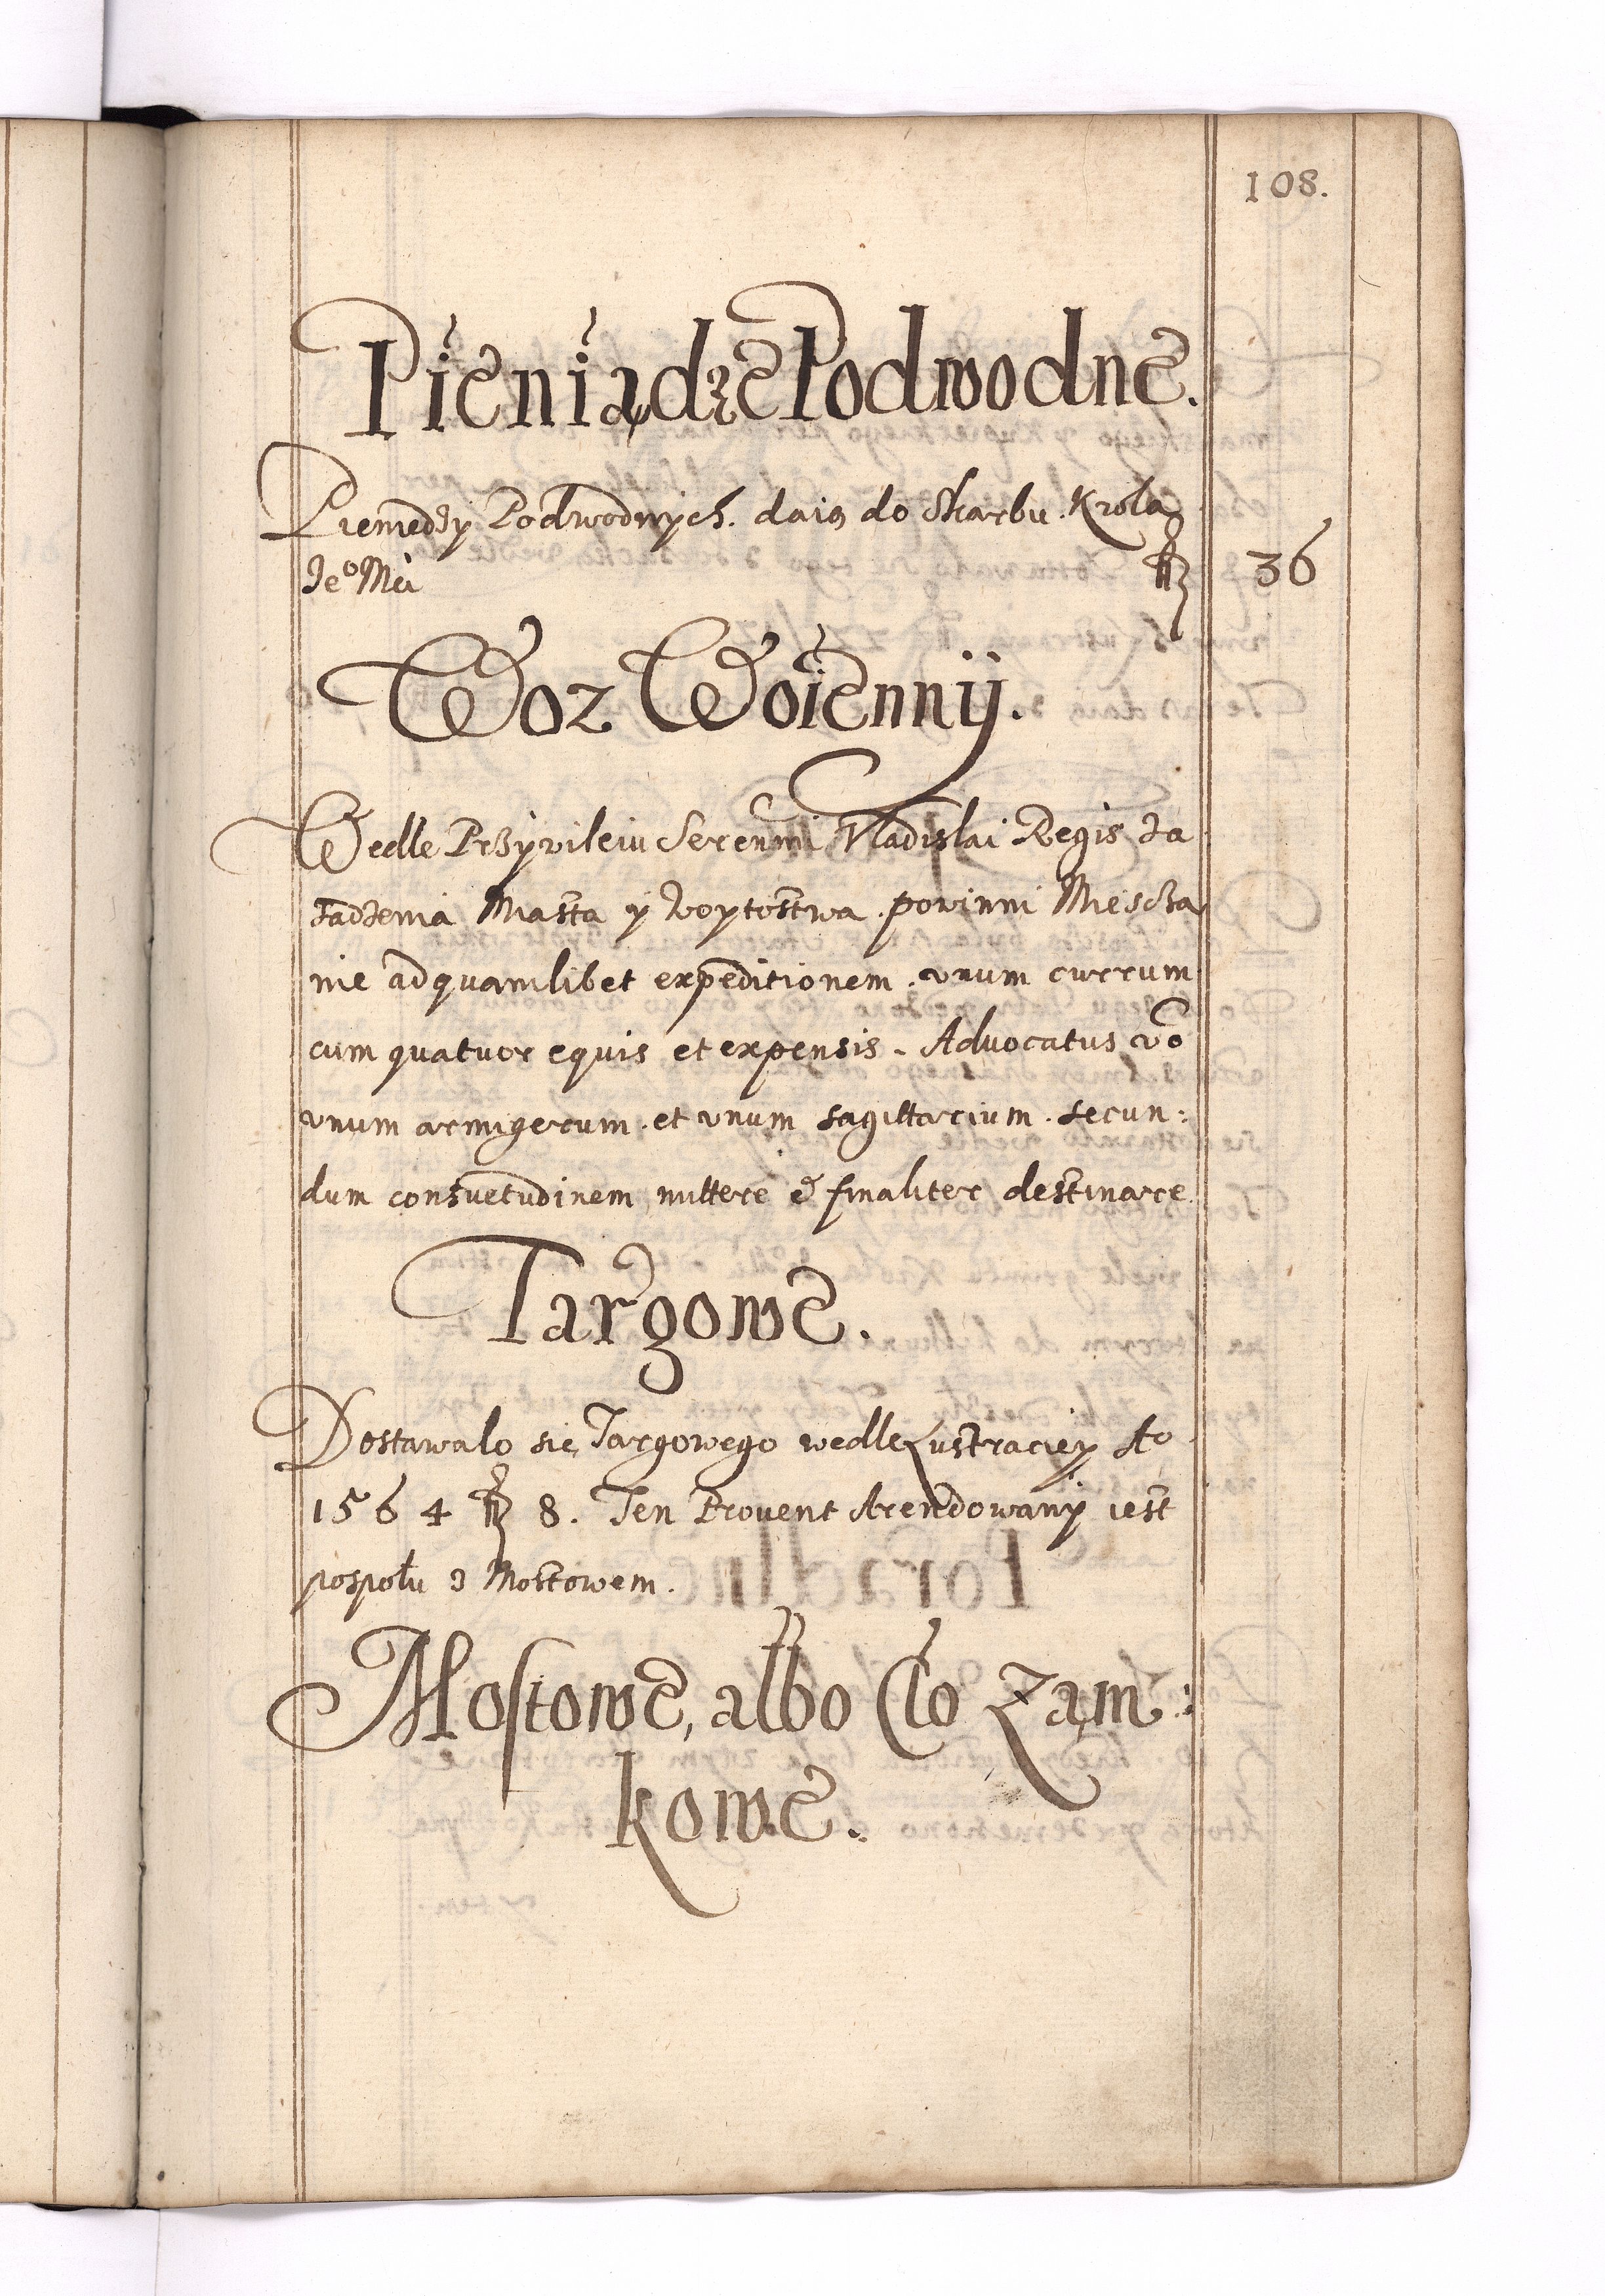 108.
Pieniądze Podwodne.
Pieniedzy Podwodnych. daią do Skarbu Krola
Je⁰ Mći 36
Woz Woiennÿ.
Wedle Przyvileiu Serenmi Vladislai Regis za
sadzenia Miasta y Woytostwa. powinni Miescza
nie ad quamlibet expeditionem. vnum currum
cum quatuor equis et expensis. Advocatus vo
vnum armigerum. et vnum sagittarium. secun:
dum consvetudinem mittere & finaliter destinare.
Targowe.
Dostawalo się Targowego wedle Lustraciey Ao
1564 8. Ten Provent Arendowany iest
pospołu z Mostowem.
Mostowe, albo Clo Zam:
kowe.